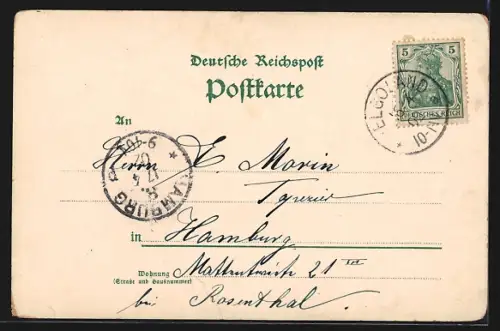 Deutsche Reichspost
Postkarte
5 5
DEUTSCHES REICH
HELGOLAND
10-11
An
Herrn E. Morin
HAMBURG
in Hamburg
Mattentwiete 21 III
Wohnung
(Straße und Hausnummer)
bei Rosenthal.